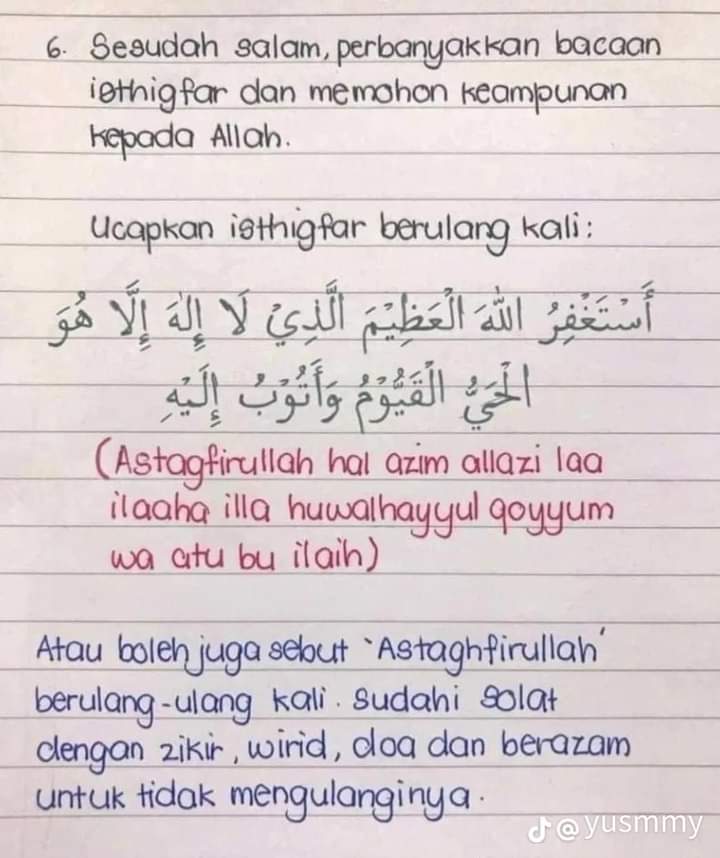 6. Sesudah salam, perbanyakkan bacaan
isthigfar dan memohon keampunan
kepada Allah.
Ucapkan isthigfar berulang kali:
أَسْتَغْفِرُ اللهَ الْعَظِيْمَ الَّذِيْ لَا إِلٰهَ إِلَّا هُوَ
الْحَيُّ الْقَيُّوْمُ وَأَتُوْبُ إِلَيْهِ
(Astagfirullah hal azim allazi laa
ilaaha illa huwalhayyul qoyyum
wa atu bu ilaih)
Atau boleh juga sebut 'Astaghfirullah'
berulang-ulang kali. Sudahi solat
dengan zikir, wirid, doa dan berazam
untuk tidak mengulanginya.
@yusmmy